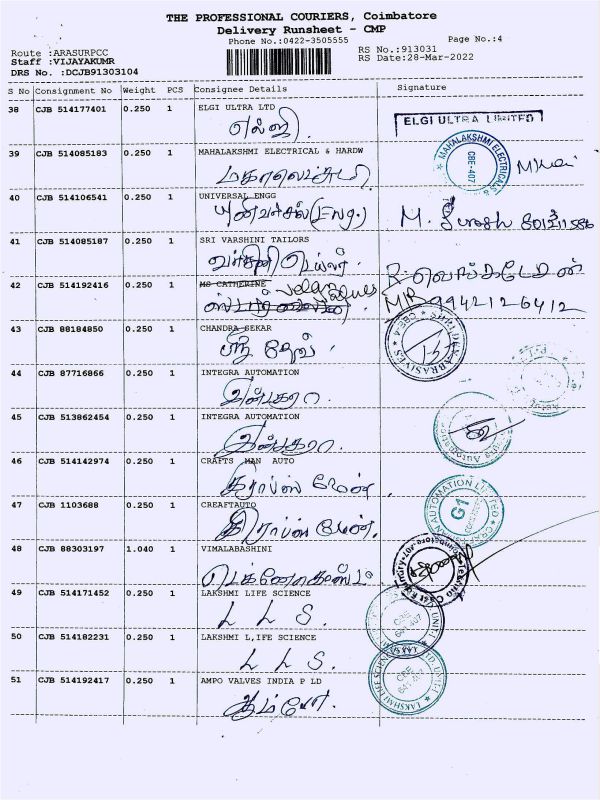 THE PROFESSIONAL COURIERS, Coimbatore
Delivery Runsheet - CMP
Phone No.:0422-3505555
Page No.:4
Route :ARASURPCC
Staff :VIJAYAKUMR
DRS No. :DCJB91303104
RS No.:913031
RS Date:28-Mar-2022
S No Consignment No Weight PCS Consignee Details Signature
38 CJB 514177401 0.250 1 ELGI ULTRA LTD
எல்ஜி. ELGI ULTRA LIMITED
39 CJB 514085183 0.250 1 MAHALAKSHMI ELECTRICAL & HARDW
மகாலெட்சுமி MAHALAKSHMI ELECTRICALS CBE-407
40 CJB 514106541 0.250 1 UNIVERSAL ENGG
யுனிவர்சல் (Eng.) M.
41 CJB 514085187 0.250 1 SRI VARSHINI TAILORS
வர்சினி டெய்லர். R. வெங்கடேசன்
42 CJB 514192416 0.250 1 MS CATHERINE
M/R 9942126412
43 CJB 88184850 0.250 1 CHANDRA SEKAR
ஸ்ரீ தேவ். SHRI DEV ABRASIVES CBE
44 CJB 87716866 0.250 1 INTEGRA AUTOMATION
இன்டகரா.
45 CJB 513862454 0.250 1 INTEGRA AUTOMATION
இன்டகரா.
46 CJB 514142974 0.250 1 CRAFTS MAN AUTO
கிராப்ஸ் மேன்.
47 CJB 1103688 0.250 1 CREAFTAUTO
கிராப்ஸ் மேன். AUTOMATION LIMITED G1
48 CJB 88303197 1.040 1 VIMALABASHINI
49 CJB 514171452 0.250 1 LAKSHMI LIFE SCIENCE
L L S. CBE 641 407
50 CJB 514182231 0.250 1 LAKSHMI L,IFE SCIENCE
L L S. LAKSHMI LIFE SCIENCES CBE 641 407
51 CJB 514192417 0.250 1 AMPO VALVES INDIA P LD
ஆம்போ.